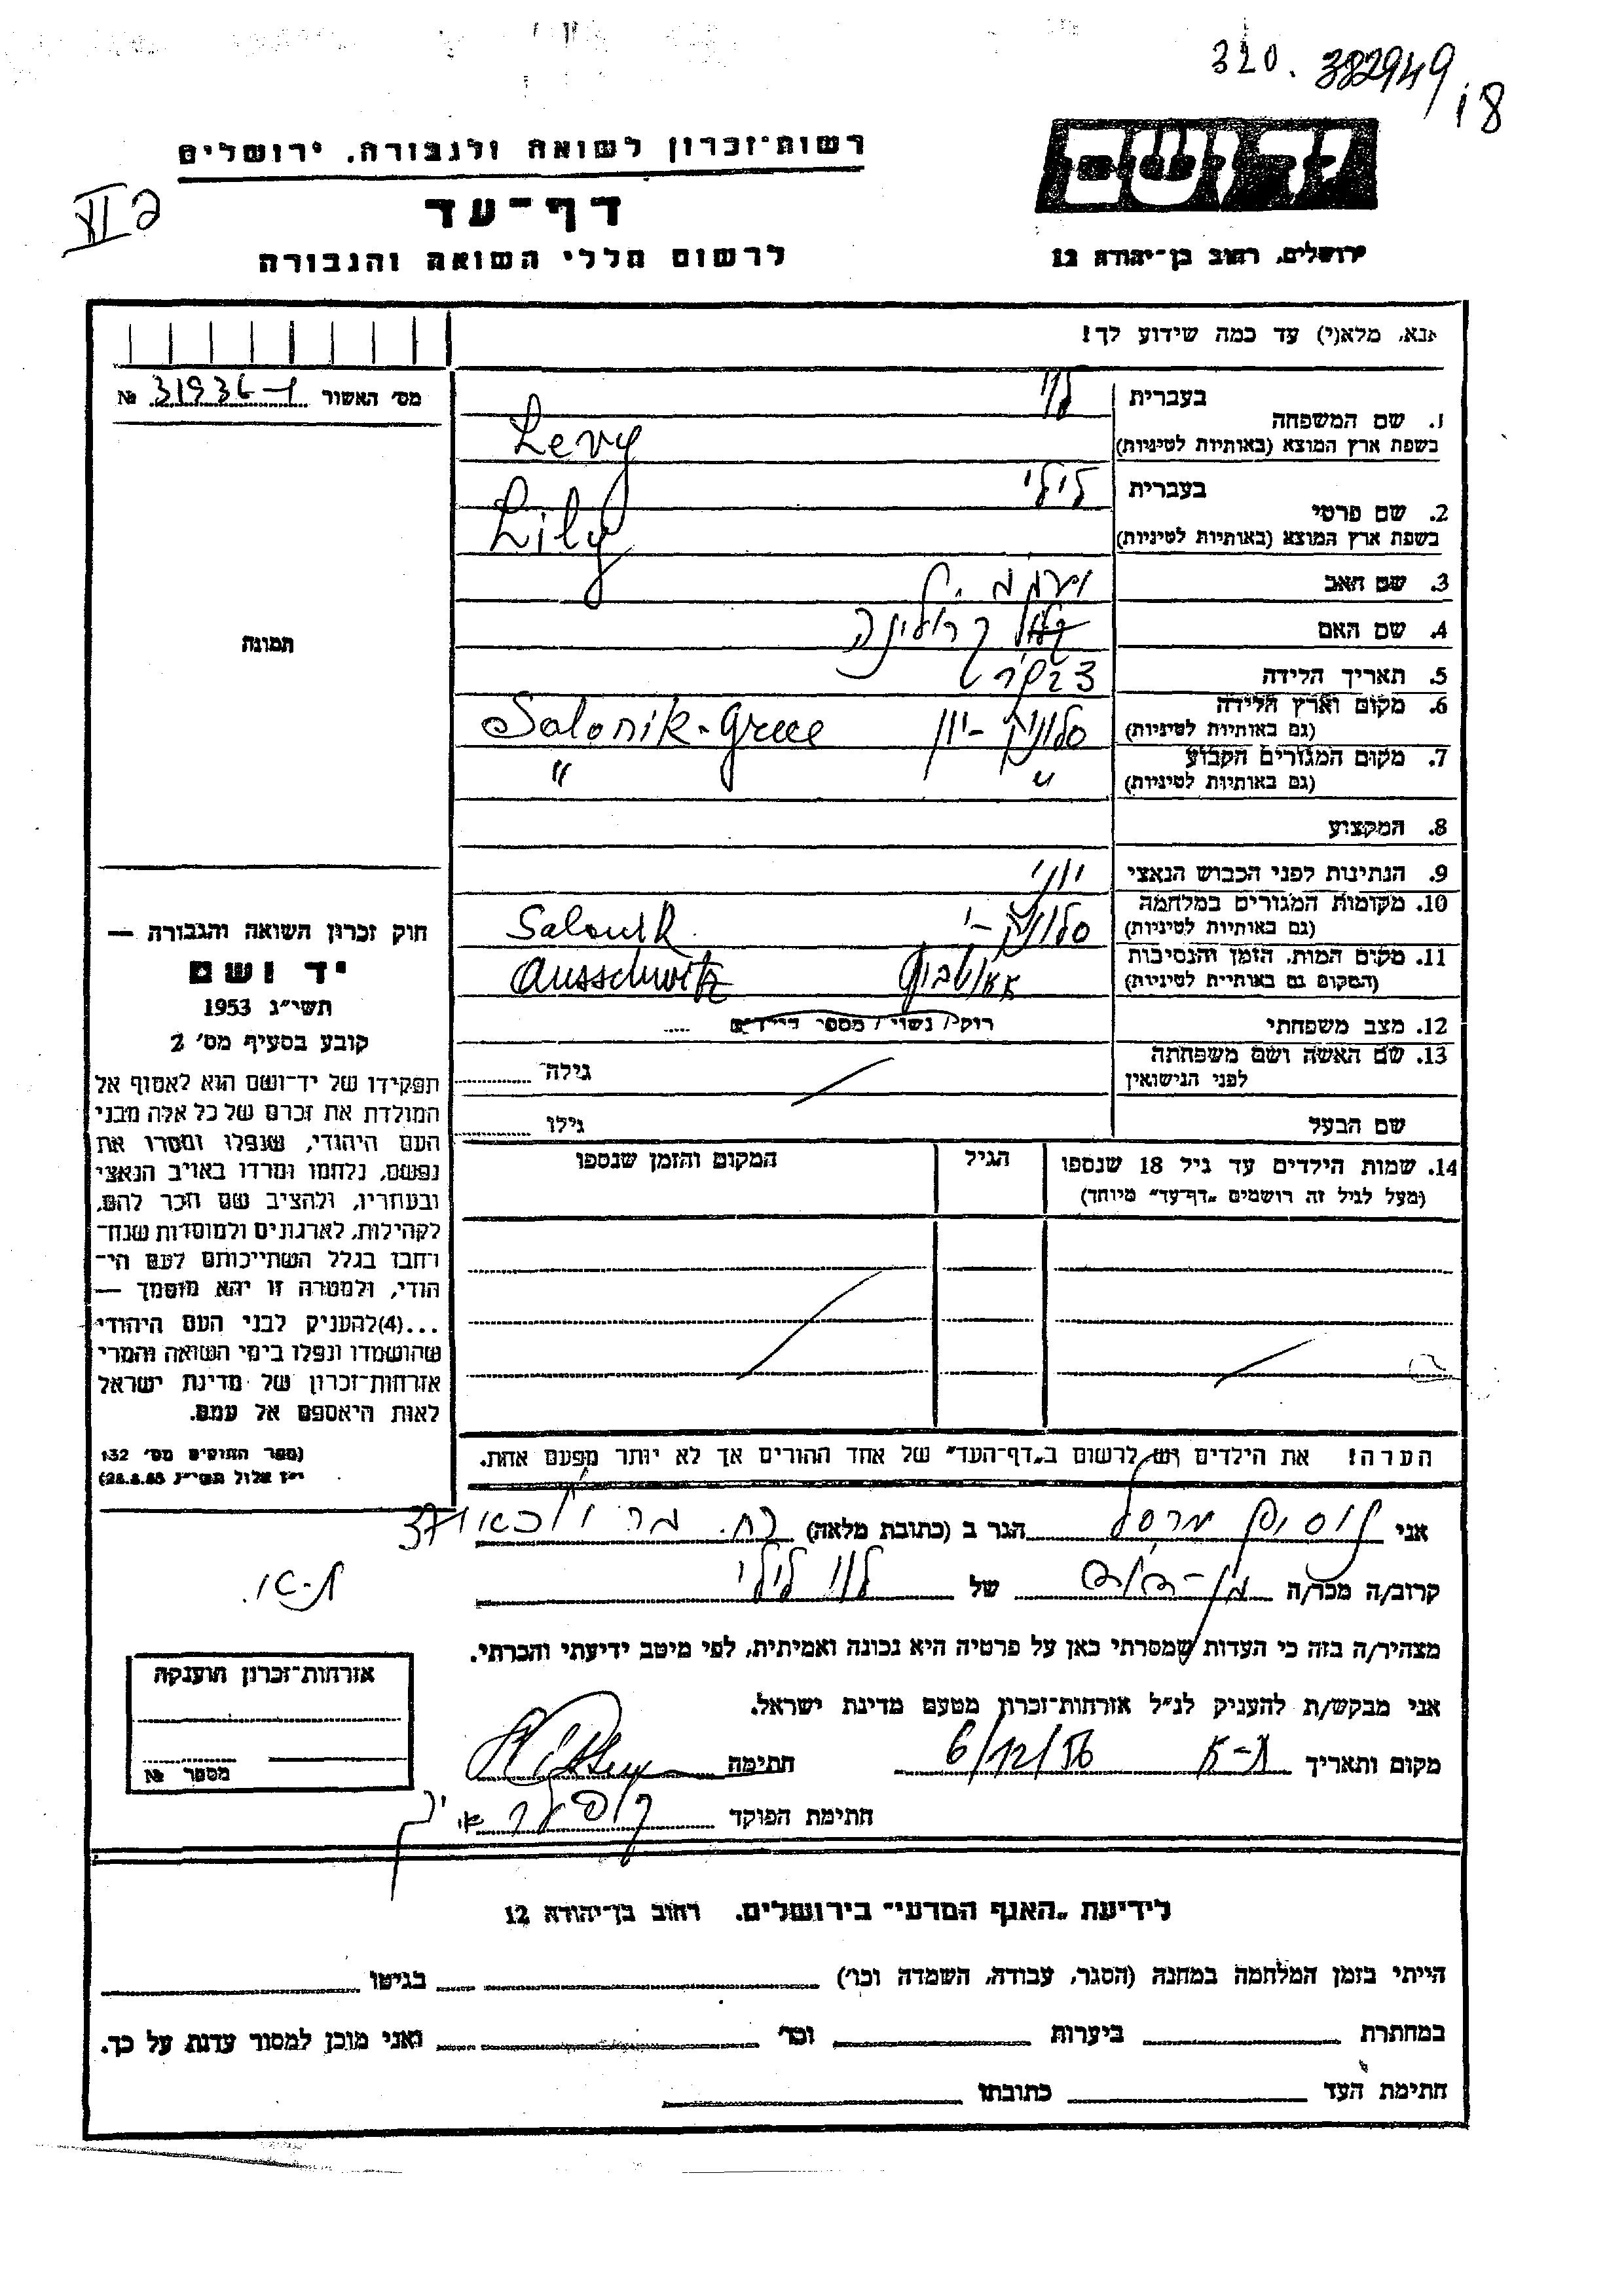 320. 382949/18
רשות־זכרון לשואה ולגבורה, ירושלים
יד ושם
דף־עד
לרשום חללי השואה והגבורה
ירושלים, רחוב בן־יהודה 12
אנא, מלא(י) עד כמה שידוע לך!
מס׳ האשור № 31936-
בעברית לוי
1. שם המשפחה
בשפת ארץ המוצא (באותיות לטיניות) Levy
בעברית לילי
2. שם פרטי
בשפת ארץ המוצא (באותיות לטיניות) Lily
3. שם האב
4. שם האם קרולינה
5. תאריך הלידה
6. מקום וארץ הלידה
(גם באותיות לטיניות) סלוניק - יון Salonik - Grece
7. מקום המגורים הקבוע
(גם באותיות לטיניות) " "
8. המקצוע
9. הנתינות לפני הכבוש הנאצי יוני
10. מקומות המגורים במלחמה
(גם באותיות לטיניות) סלוניק - י Salonik
11. מקום המות, הזמן והנסיבות
(המקום גם באותיות לטיניות) Ausschwitz
12. מצב משפחתי רוק / נשוי / מספר הילדים
13. שם האשה ושם משפחתה
לפני הנישואין גילה
שם הבעל גילו
14. שמות הילדים עד גיל 18 שנספו הגיל המקום והזמן שנספו
(מעל לגיל זה רושמים „דף־עד״ מיוחד)
הערה! את הילדים יש לרשום ב„דף־העד״ של אחד ההורים אך לא יותר מפעם אחת.
תמונה
חוק זכרון השואה והגבורה —
יד ושם
תשי״ג 1953
קובע בסעיף מס׳ 2
תפקידו של יד־ושם הוא לאסוף אל
המולדת את זכרם של כל אלה מבני
העם היהודי, שנפלו ומסרו את
נפשם, נלחמו ומרדו באויב הנאצי
ובעוזריו, ולהציב שם וזכר להם,
לקהילות, לארגונים ולמוסדות שנח־
רבו בגלל השתייכותם לעם הי־
הודי, ולמטרה זו יהא מוסמך —
...(4)להעניק לבני העם היהודי
שהושמדו ונפלו בימי השואה והמרי
אזרחות־זכרון של מדינת ישראל
לאות היאספם אל עמם.
(ספר החוקים מס׳ 132
י״ז אלול תשי״ג 28.8.53)
אני מרסל הגר ב (כתובת מלאה) רח. 37
ת-א.
קרוב/ה מכר/ה בן-דוד של לוי לילי
מצהיר/ה בזה כי העדות שמסרתי כאן על פרטיה היא נכונה ואמיתית, לפי מיטב ידיעתי והכרתי.
אני מבקש/ת להעניק לנ״ל אזרחות־זכרון מטעם מדינת ישראל.
מקום ותאריך ת-א 6/12/56 חתימה
חתימת הפוקד
אזרחות־זכרון הוענקה
מספר №
לידיעת „האגף המדעי״ בירושלים. רחוב בן־יהודה 12
הייתי בזמן המלחמה במחנה (הסגר, עבודה, השמדה וכו׳) בגיטו
במחתרת ביערות וכו׳ ואני מוכן למסור עדות על כך.
חתימת העד כתובתו